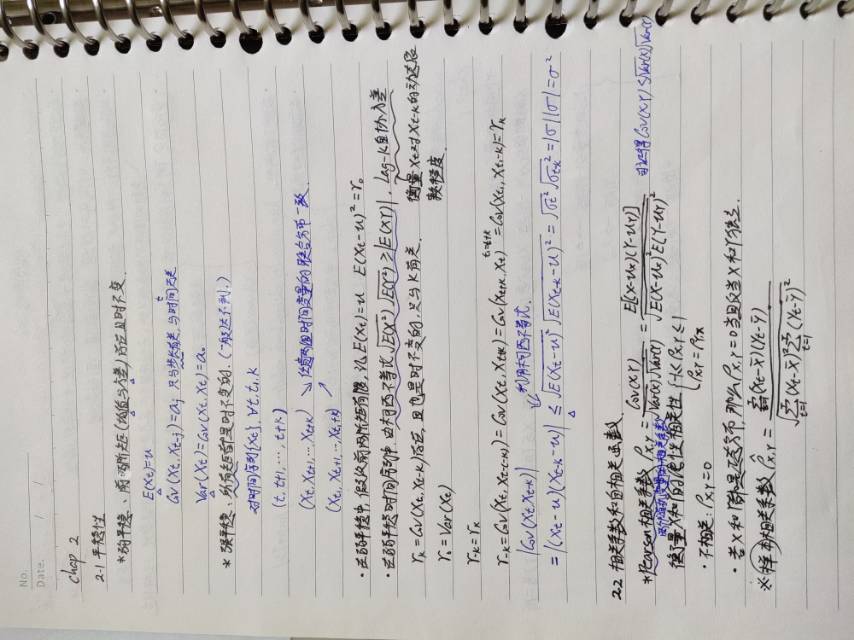 No.
Date.
chap 2
2-1 平稳性
*弱平稳、前两阶矩(均值与方差)存在且时不变.
E(Xt)=u
Cov(Xt, Xt-j)=aj 只与步长有关, 与时间t无关
Var(Xt)=Cov(Xt, Xt)=a0
*强平稳、所有矩都是时不变的. (一般达不到.)
对时间序列{Xt}, ∀t, t1, k
(t, t+1, ⋯, t+k)
(Xt, Xt+1, ⋯, Xt+k) ↘ 任意两组时间变量的联合分布一致
(Xt1, Xt1+1, ⋯, Xt1+k) ↗
·在弱平稳中, 假设前两阶矩有限, 记 E(Xt)=u E(Xt-u)²=r0
·在弱平稳时间序列中. 由柯西不等式, √E(X²)√E(Y²) ≥ |E(XY)|. Lag-k自协方差
rk = Cov(Xt, Xt-k)存在, 且也是时不变的, 只与k有关.
衡量Xt与Xt-k的动态依赖程度
r0 = Var(Xt)
r-k = rk
r-k = Cov(Xt, Xt-(-k)) = Cov(Xt, Xt+k) = Cov(Xt+k, Xt) = Cov(Xt1, Xt1-k) = rk
t1=t+k
|Cov(Xt, Xt-k)| 利用柯西不等式.
= |(Xt-u)(Xt-k-u)| ≤ √E(Xt-u)² √E(Xt-k-u)² = √σt² √σt-k² = |σ||σ| = σ²
2.2 相关系数和自相关函数
*Pearson相关系数 ρX,Y = Cov(X,Y) / √Var(X)√Var(Y) = E[(X-ux)(Y-uY)] / √E(X-ux)² E(Y-uY)² 可证得Cov(X,Y) ≤ √Var(X)√Var(Y)
衡量X和Y的线性相关性 { -1 ≤ ρX,Y ≤ 1
ρX,Y = ρY,X
·不相关: ρX,Y = 0
·若X和Y都是正态分布, 那么 ρX,Y = 0 当且仅当X和Y独立.
※样本相关系数 ρ̂X,Y = Σ(Xt-x̄)(Yt-ȳ) / √Σ(Xt-x̄)² Σ(Yt-ȳ)²